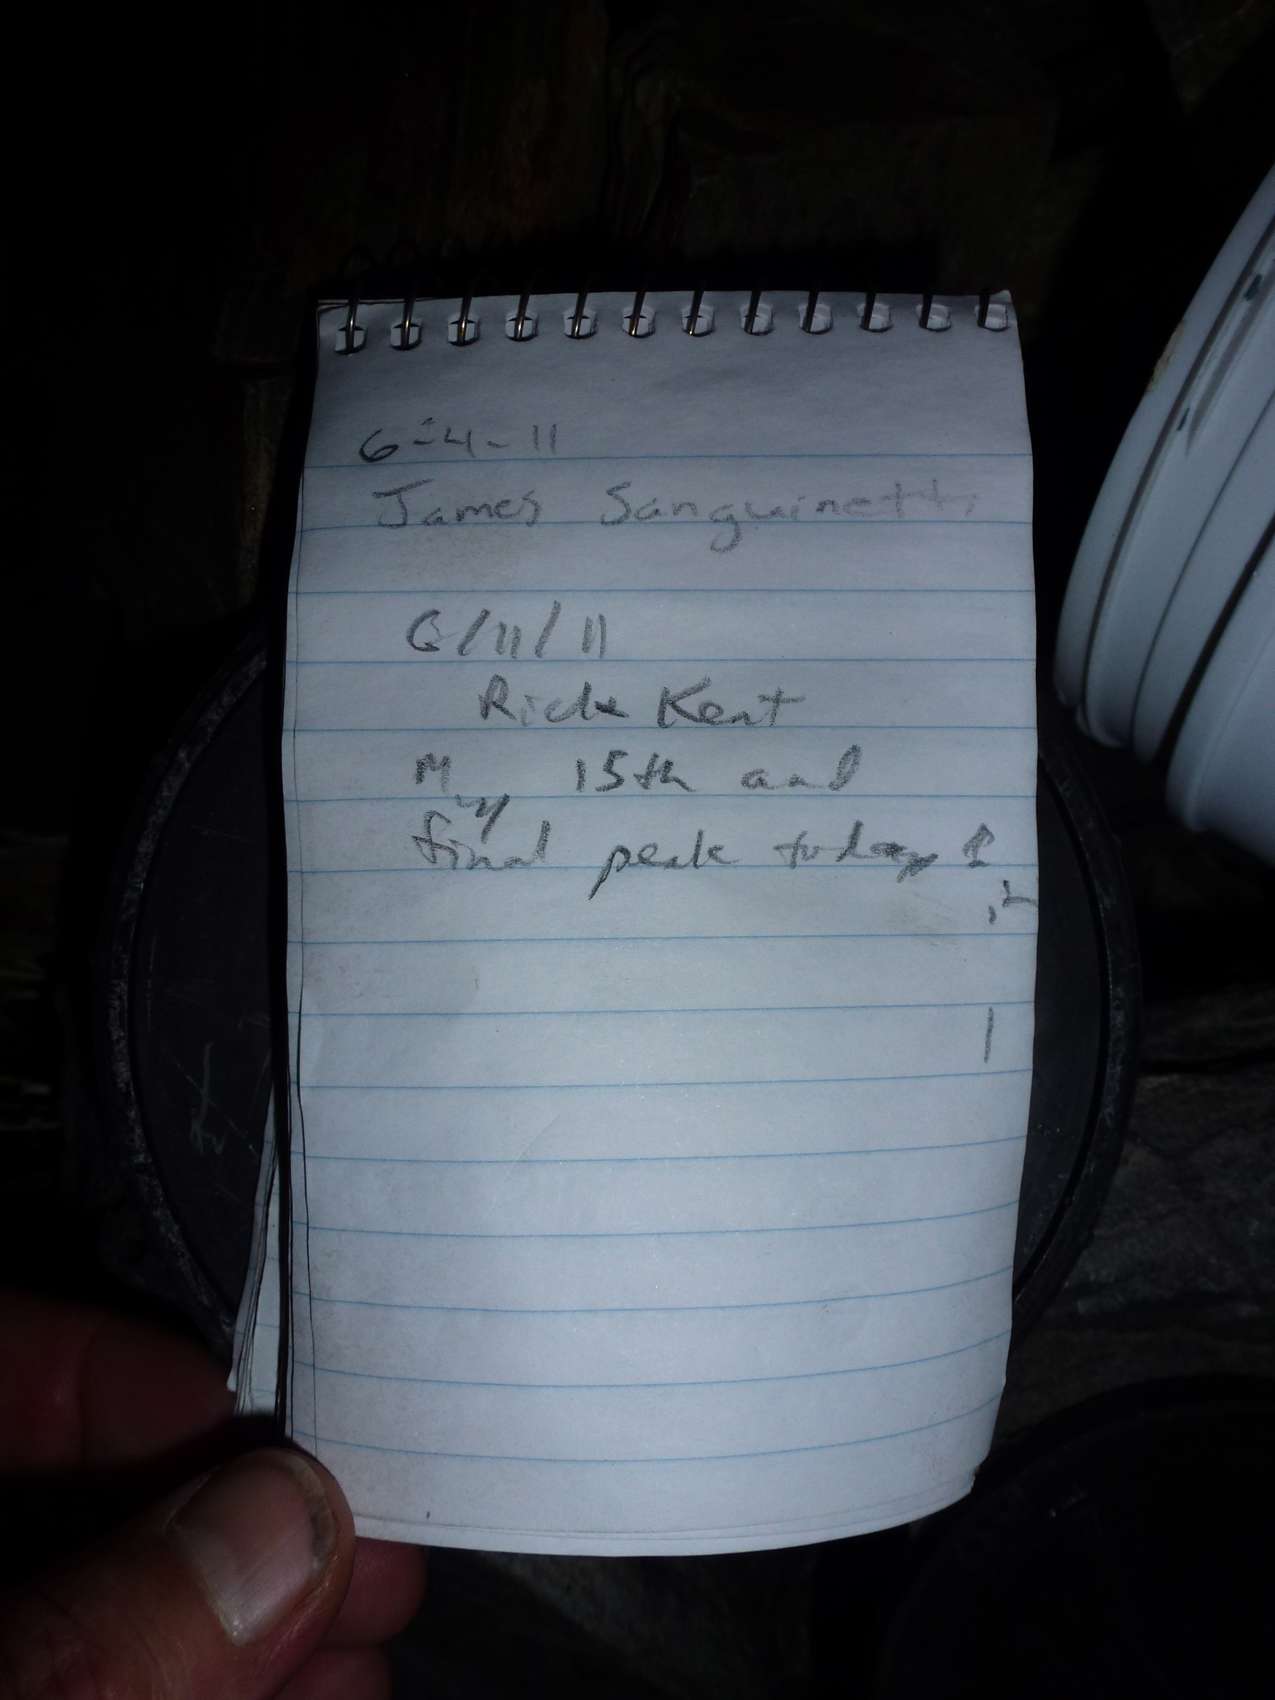 6-4-11
James Sanguinetti
6/11/11
Rick Kent
My 15th and
final peak today!